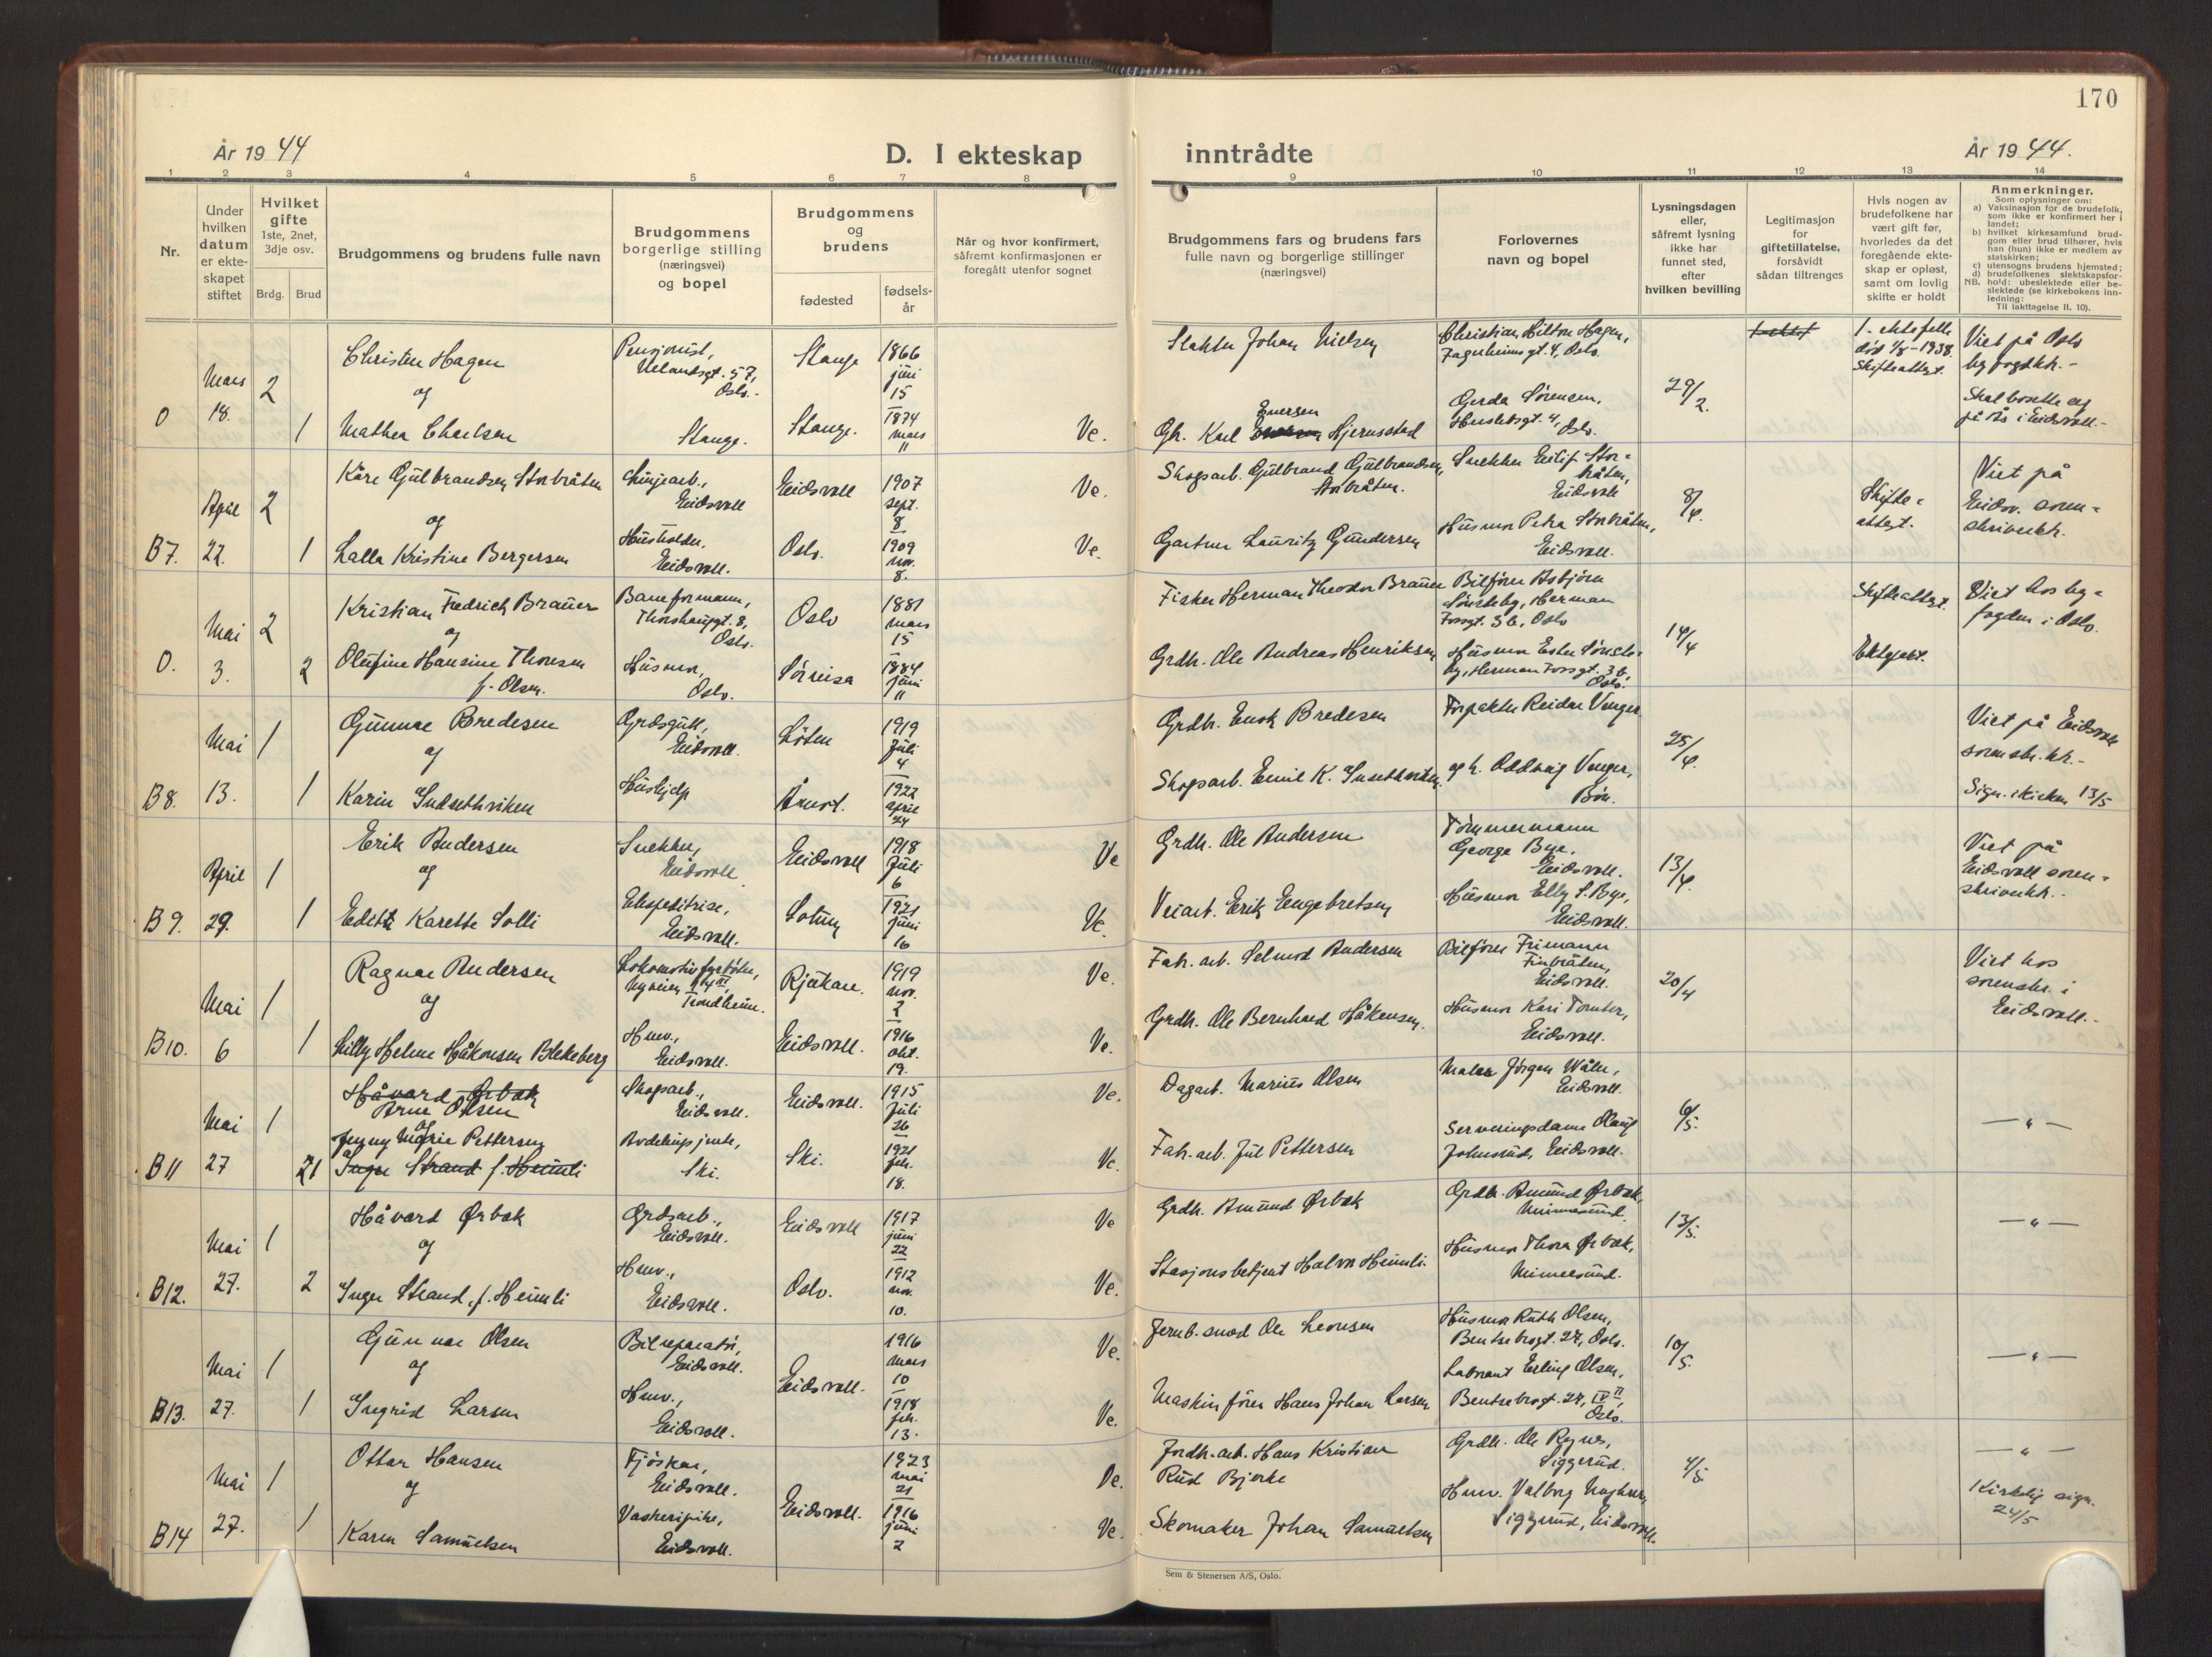 170
År 1944
D. I ekteskap inntrådte
År 1944.
1 2 3 4 5 6 7 8 9 10 11 12 13 14
Nr.
Under
hvilken
datum
er ekte-
skapet
stiftet
Hvilket
gifte
1ste, 2net,
3dje osv.
Brdg. Brud
Brudgommens og brudens fulle navn
Brudgommens
borgerlige stilling
(næringsvei)
og bopel
Brudgommens
og
brudens
fødested
fødsels-
år
Når og hvor konfirmert,
såfremt konfirmasjonen er
foregått utenfor sognet
Brudgommens fars og brudens fars
fulle navn og borgerlige stillinger
(næringsvei)
Forlovernes
navn og bopel
Lysningsdagen
eller,
såfremt lysning
ikke har
funnet sted,
efter
hvilken bevilling
Legitimasjon
for
giftetillatelse,
forsåvidt
sådan tiltrenges
Hvis nogen av
brudefolkene har
vært gift før,
hvorledes da det
foregående ekte-
skap er opløst,
samt om lovlig
skifte er holdt
Anmerkninger.
Som oplysninger om:
a) Vaksinasjon for de brudefolk,
som ikke er konfirmert her i
landet;
b) hvilket kirkesamfund brud-
gom eller brud tilhører, hvis
han (hun) ikke er medlem av
statskirken;
c) utensogns brudens hjemsted;
d) brudefolkenes slektskapsfor-
hold: ubeslektede eller be-
slektede (se kirkebokens inn-
ledning:
NB.
Til iakttagelse II. 10).
O
Mars
18.
2
1
Christen Hagen
og
Mathea Charlsen
Pensjonist,
Uelandsgt. 57,
Oslo.
Stange.
Stange
Stange.
1866
juni
15
1874
mars
11
Ve.
Slakter Johan Nielsen
Gb. Karl Evensen Hjernstad
Christian Hilton Hagen,
Fagerheimsgt. 4, Oslo.
Gerda Sørensen,
Oslo.
29/2.
1. ektefelle
død 1/8-1938.
Skifteattest.
Viet på Oslo
byfogdktr.-
Skal bosette seg
på Ås i Eidsvoll.-
B7.
April
22.
2
1
Kåre Gulbrandsen Storbråten
og
Lalla Kristine Bergersen
Linjearb.,
Eidsvoll
Husholder,
Eidsvoll.
Eidsvoll
Oslo.
1907
sept.
8
1909
nov.
8.
Ve.
Ve.
Skogsarb. Gulbrand Gulbrandsen
Storbråten.
Gartner Lauritz Gundersen
Snekker Eilif Stor-
bråten,
Eidsvoll
Husmor Petra Storbråten,
Eidsvoll.
8/4.
Skifte-
attest.
Viet på
Eidsv. soren-
skriverktr.
O.
Mai
3.
2
2
Kristian Fredrich Brauer
og
Olufine Hansine Thoresen
f. Olsen.
Baneformann,
Thorshauggt. 8,
Oslo.
Husmor,
Oslo.
Oslo
Sørreisa
1881
mars
15
1884
juni
11
Fisker Herman Theodor Brauer
Grdb. Ole Andreas Henriksen
Bilfører Asbjørn
Sørsteby, Herman
Fossgt. 3 b, Oslo
Husmor Ester Sørste-
by, Herman Fossgt. 3 b,
Oslo.
14/4
Skifteattest.
Viet hos by-
fogden i Oslo.
B8.
Mai
13.
1
1
Gunnar Bredesen
og
Karin Sundsethviken
Grdsgutt,
Eidsvoll.
Hushjelp
Løten
Åmot.
1919
Juli
4
1922
april
24
Grdb. Enok Bredesen
Skogsarb. Emil K.
Forpakter Reidar Venger
og h. Oddveig Venger,
Bøn.
25/4.
Viet på Eidsvoll
sorenskr.ktr.-
Sign. i kirken 13/5
B9.
April
29.
1
1
Erik Andersen
og
Edith Karette Solli
Snekker,
Eidsvoll
Ekspeditrise,
Eidsvoll.
Eidsvoll
1918
Juli
6
1921
juni
16
Ve
Ve.
Grdb. Ole Andersen
Veiarb. Erik Engebretsen
Tømmermann
George Bye,
Eidsvoll.
Husmor Elly S. Bye,
Eidsvoll.
13/4.
Viet på
Eidsvoll soren-
skriverktr.-
B10.
Mai
6
1
1
Ragnar Andersen
og
Lilly Helene Håkonsen Blekeberg
Lokomotivfyrbøter,
Nyveien 14 II,
Trondheim.
Hmv.,
Eidsvoll.
Rjukan.
Eidsvoll.
1919
nov.
2
1916
okt.
19.
Ve.
Ve.
Fab. arb. Selmod Andersen
Grdb. Ole Bernhard Håkonsen.
Bilfører Frimann
Finbråten,
Eidsvoll.
Husmor Kari Tomter,
Eidsvoll.
20/4
Viet hos
sorenskr. i
Eidsvoll.-
B11
Mai
27
1
21
Håvard Ørbæk
Arne Olsen
og
Jenny Marie Pettersen
Inger Strand f. Heimli
Skogsarb.,
Eidsvoll.
Avdelingsjente,
Ski.
Eidsvoll.
Ski.
1915
Juli
26
1921
feb.
18.
Ve.
Ve.
Dagarb. Marius Olsen
Fab. arb. Jul Pettersen
Maler Jørgen Wåler,
Eidsvoll.
Serveringsdame Olaug
Johnsrud, Eidsvoll.
6/5.
— " —
B12.
Mai
27.
1
2
Håvard Ørbæk
og
Inger Strand, f. Heimli
Grdsarb.,
Eidsvoll.
Hmv.,
Eidsvoll.
Eidsvoll
Oslo.
1917
juni
22
1912
nov.
10.
Ve
Ve.
Grdb. Amund Ørbæk
Stasjonsbetjent Halvor Heimli.
Grdb. Amund Ørbæk,
Minnesund.
Husmor Thora Ørbæk,
Minnesund.
13/5.
— " —
B13.
Mai
27.
1
1
Gunnar Olsen
og
Ingrid Larsen
Bilreparatør,
Eidsvoll.
Hmv.,
Eidsvoll.
Eidsvoll.
1916
mars
10
1918
feb.
13.
Ve.
Ve.
Jernb.smed Ole Leonsen
Maskinfører Hans Johan Larsen
Husmor Ruth Olsen,
Bentsebrogt. 27, Oslo.
Laborant Erling Olsen,
Bentsebrogt. 27, IV
Oslo.
10/5.
— " —
B14
Mai
27.
1
1
Ottar Hansen
og
Karen Samuelsen
Fjøskar,
Eidsvoll.
Vaskeripike,
Eidsvoll.
Eidsvoll.
1923
mai
21
1916
juni
2
Ve.
Ve.
Jordb.arb. Hans Kristian
Rud Bjerke
Skomaker Johan Samuelsen
Grdb. Ole
Siggerud.
Hmv. Valborg
Siggerud, Eidsvoll.
4/5
— " —
Kirkelig sign.
24/5
Sem & Stenersen A/S, Oslo.